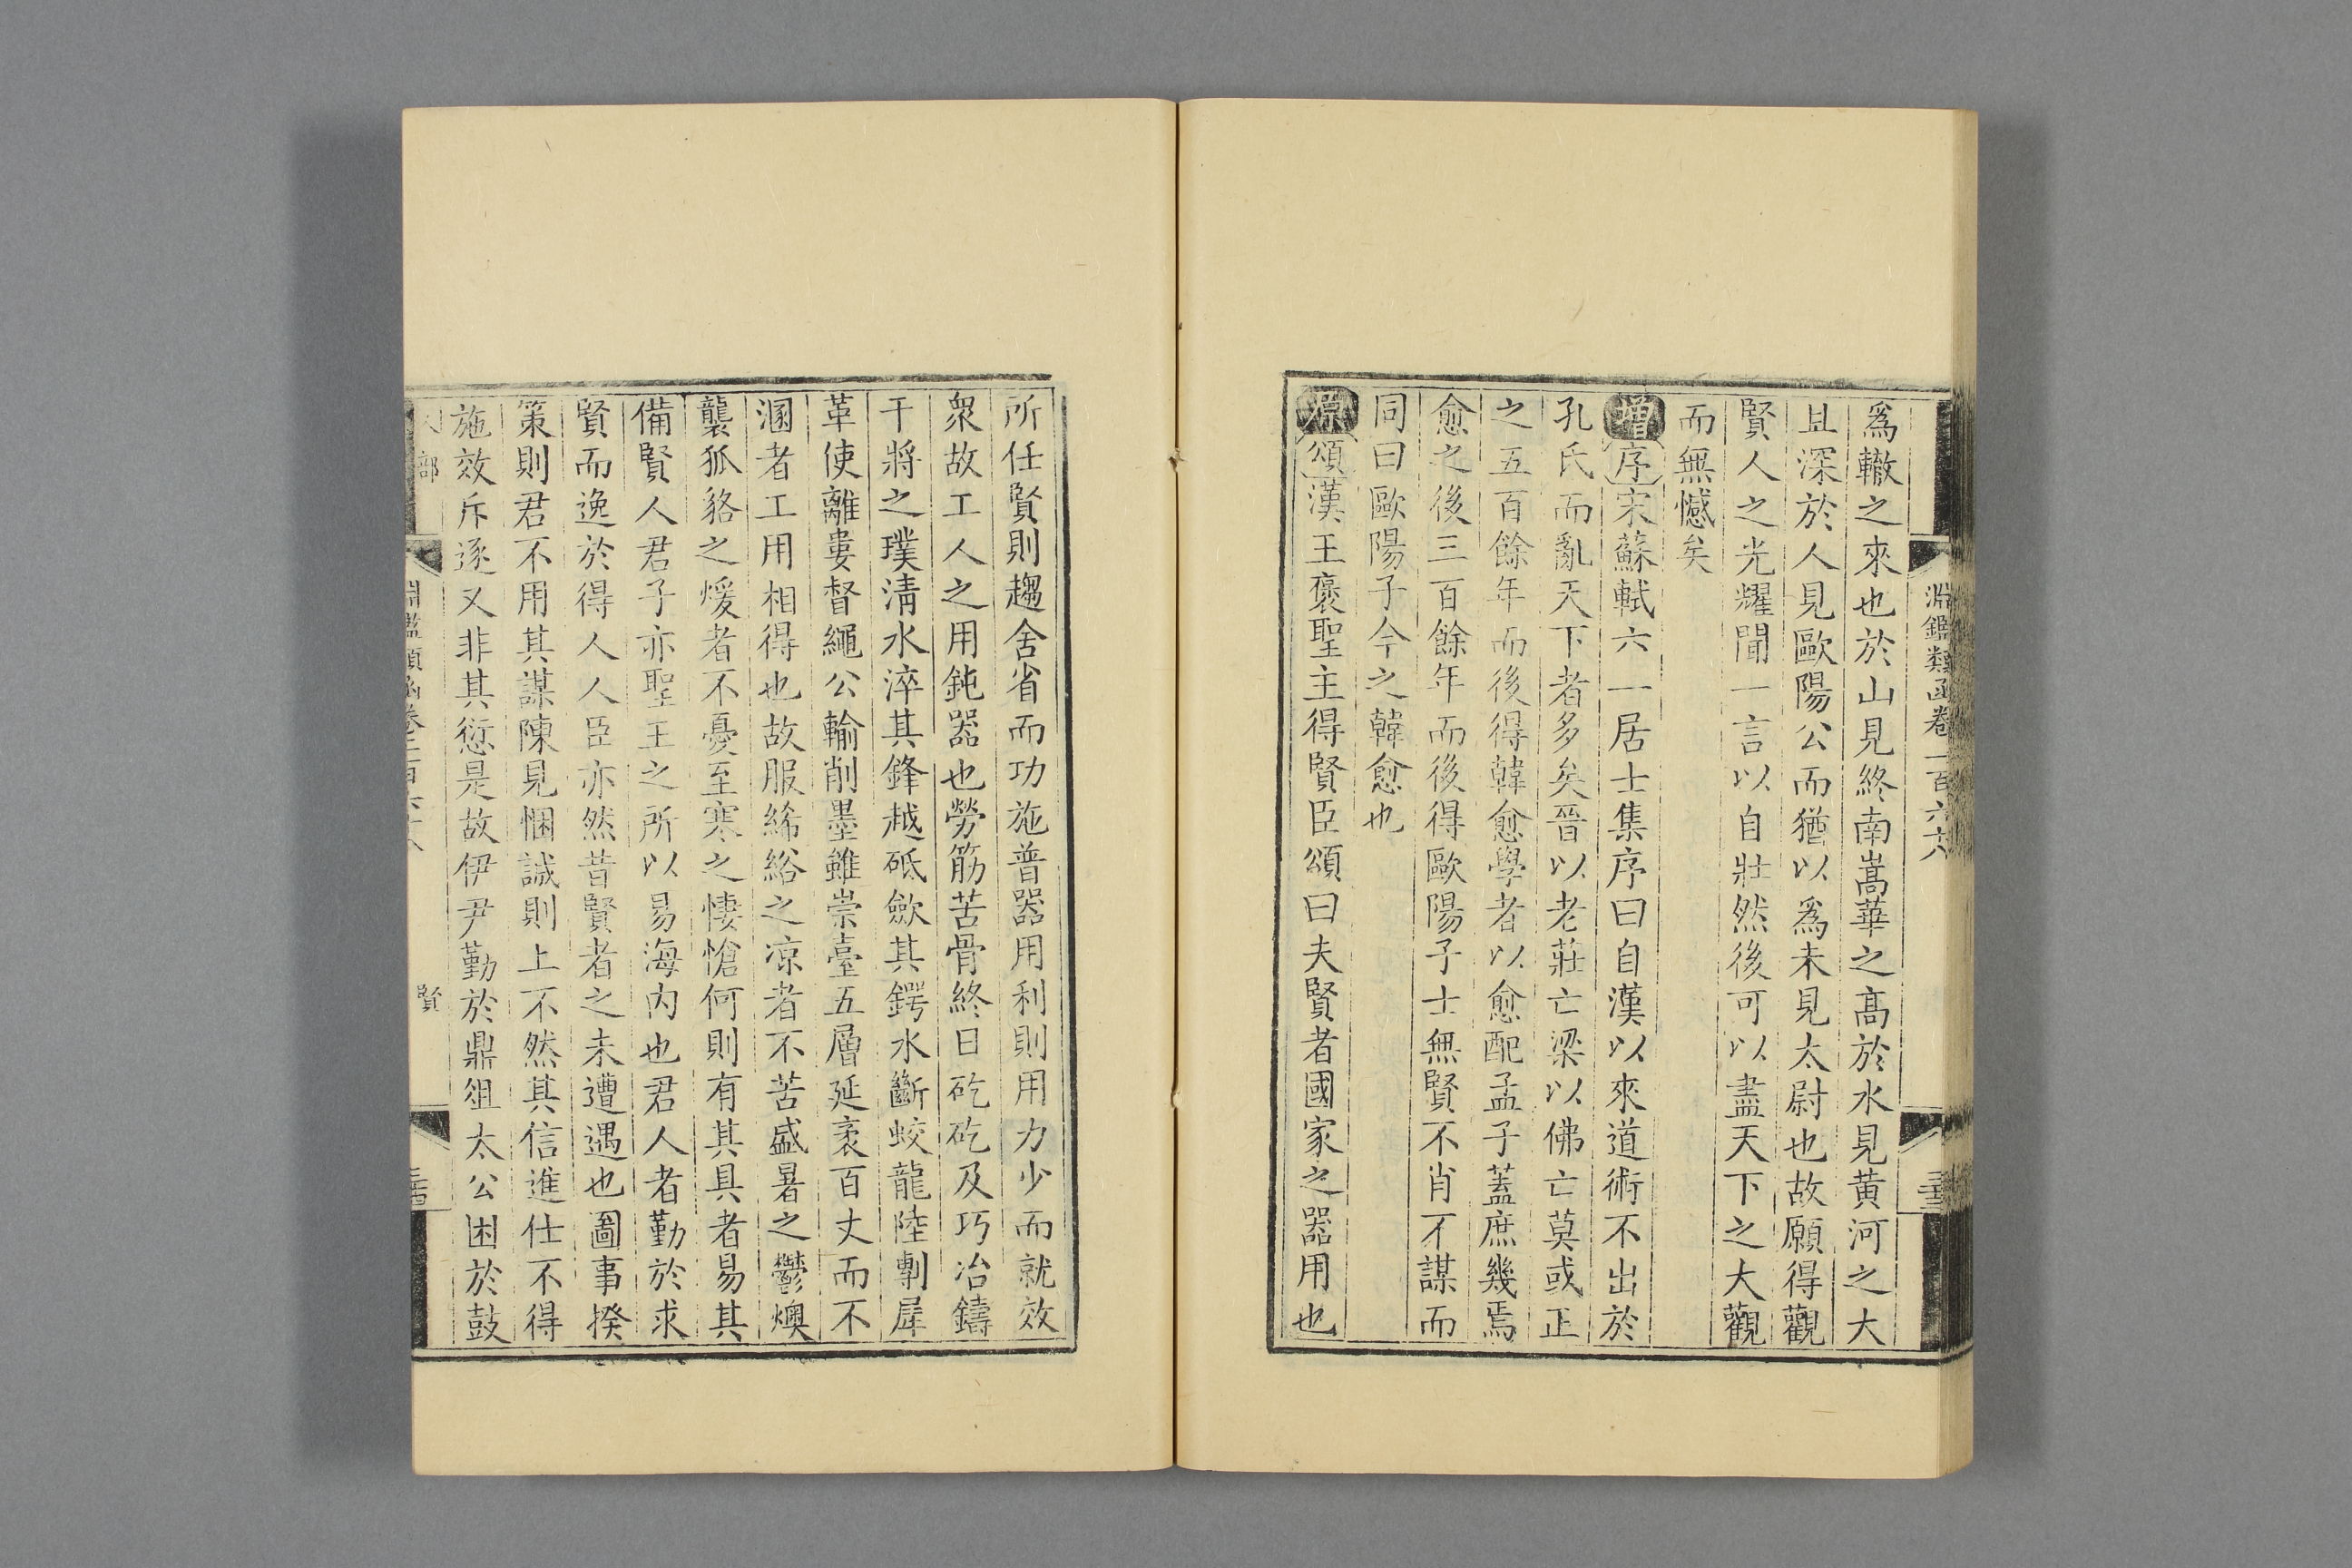 淵鑑類函卷二百六六
爲轍之來也於山見終南嵩華之高於水見黄河之大
且深於人見歐陽公而猶以爲未見太尉也故願得觀
賢人之光耀聞一言以自壯然後可以盡天下之大觀
而無憾矣
增序宋蘇軾六一居士集序曰自漢以來道術不出於
孔氏而亂天下者多矣晉以老莊亡梁以佛亡莫或正
之五百餘年而後得韓愈學者以愈配孟子蓋庶幾焉
愈之後三百餘年而後得歐陽子士無賢不肖不謀而
同曰歐陽子今之韓愈也
原頌漢王褒聖主得賢臣頌曰夫賢者國家之器用也
所任賢則趨舍省而功施普器用利則用力少而就效
衆故工人之用鈍器也勞筋苦骨終日矻矻及巧冶鑄
干將之璞淸水淬其鋒越砥歛其鍔水斷蛟龍陸剸犀
革使離婁督繩公輸削墨雖崇臺五層延袤百丈而不
溷者工用相得也故服絺綌之凉者不苦盛暑之鬱燠
襲狐貉之煖者不憂至寒之悽愴何則有其具者易其
備賢人君子亦聖王之所以易海內也君人者勤於求
賢而逸於得人人臣亦然昔賢者之未遭遇也圖事揆
策則君不用其謀陳見悃誠則上不然其信進仕不得
施效斥逐又非其愆是故伊尹勤於鼎俎太公困於鼓
人部
賢